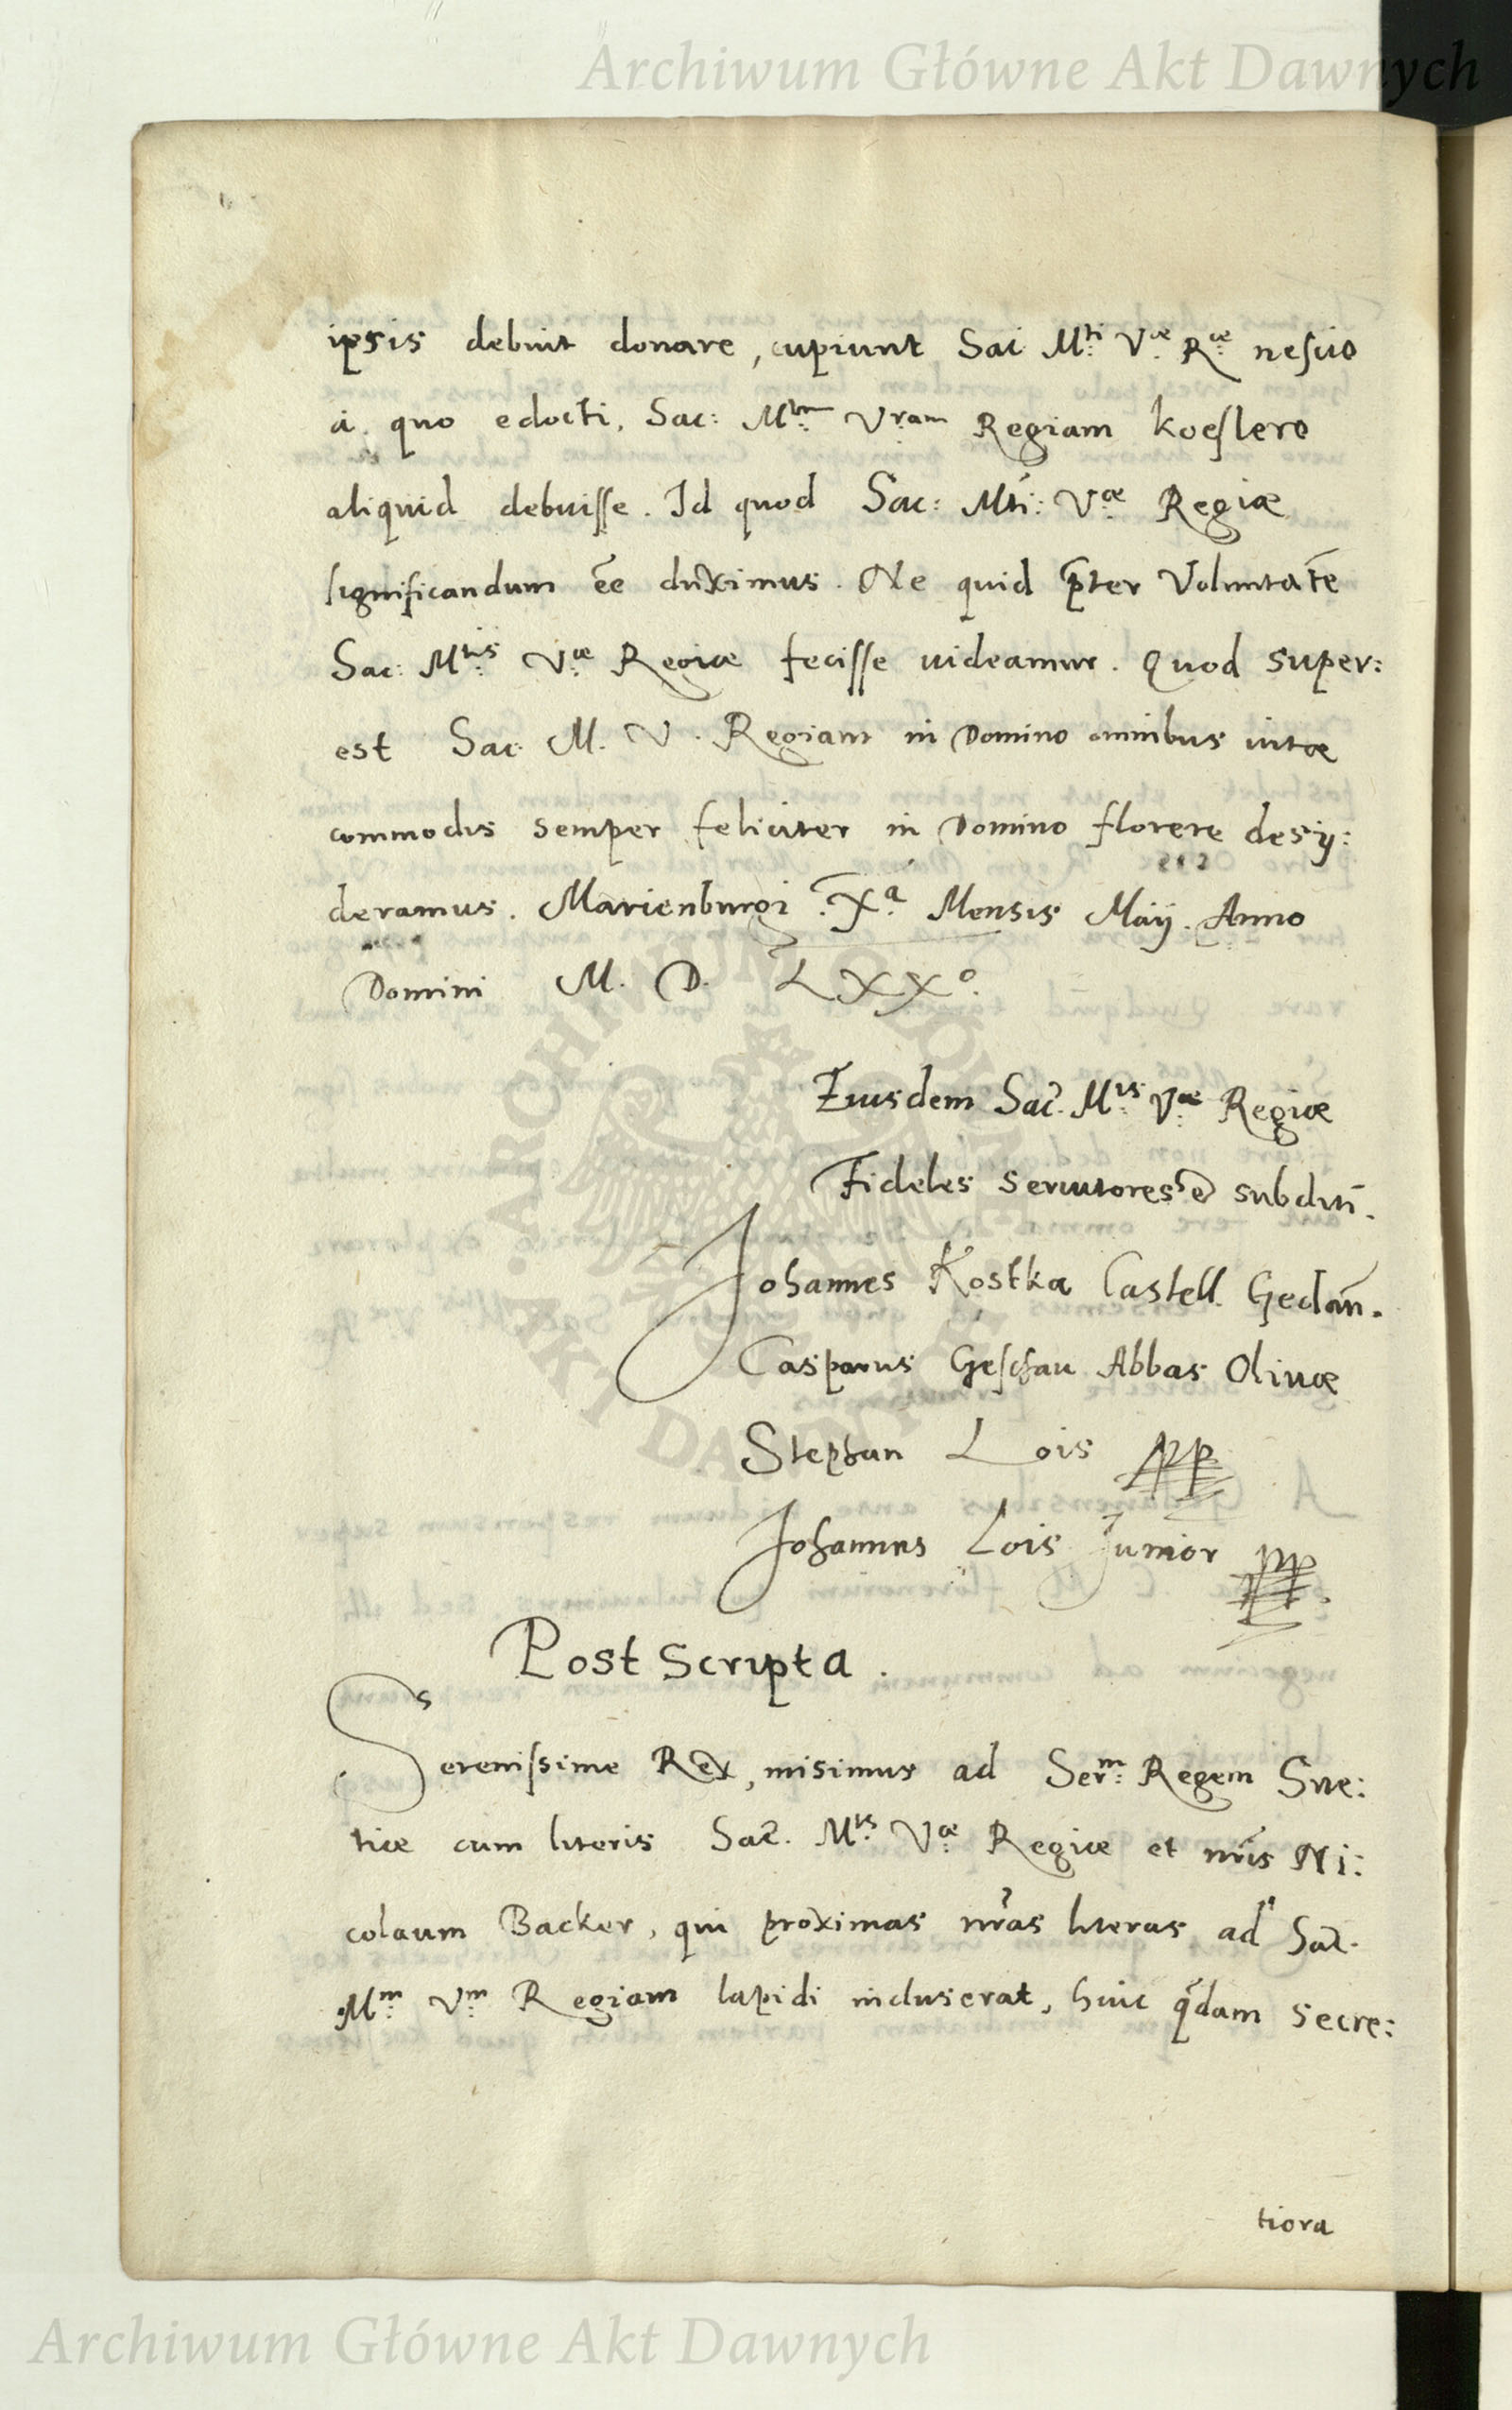 Archiwum Główne Akt Dawnych
ipsis debuit donare, cupiunt Sac Mti Væ Ræ nescio
a quo edocti, Sac: Mtm Vram Regiam Koeslero
aliquid debuisse. Id quod Sac: Mti: Væ Regiæ
significandum ẽe duximus. Ne quid p̃ter Voluntatẽ
Sac: Mtis Væ Regiæ fecisse uideamur. Quod super:
est Sac. M. V. Regiam in Domino omnibus uitæ
commodis semper feliciter in Domino florere desy:
deramus. Marienburgi Xa Mensis Maÿ. Anno
Domini M. D. LXXo.
Eiusdem Sac. Mtis Væ Regiæ
Fideles seruitores et subditi.
Johannes Kostka Castell. Gedan̄.
Casparus Geschau Abbas Oliuæ
Stephan Lois
Johannes Lois Junior
Post Scripta.
Serenissime Rex, misimus ad Serm: Regem Sue:
tiæ cum literis Sac. Mtis Væ Regiæ et nr̃is Ni:
colaum Backer, qui proximas nr̃as literas ad Sac.
Mm Vm Regiam lapidi incluserat, huic q̃dam secre:
tiora
ARCHIWUM GŁÓWNE
AKT DAWNYCH
Archiwum Główne Akt Dawnych